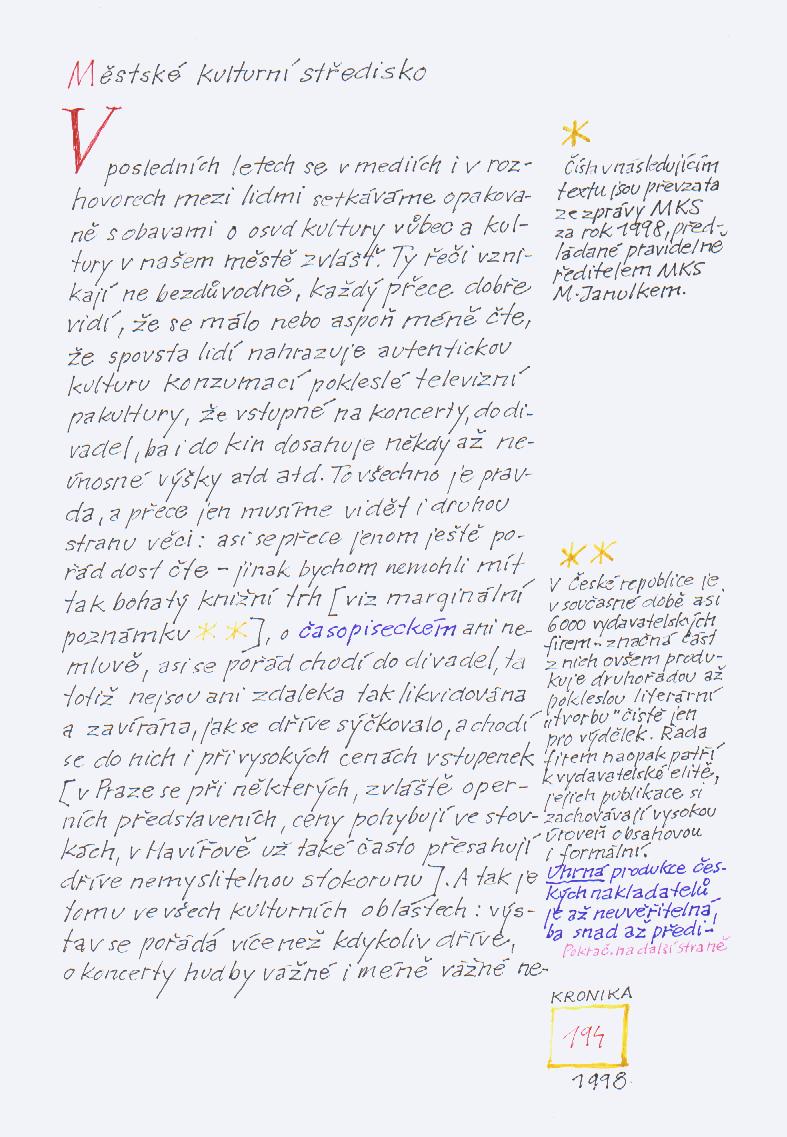 Městské kulturní středisko
V posledních letech se v mediích i v roz-
hovorech mezi lidmi setkáváme opakova-
ně s obavami o osud kultury vůbec a kul-
tury v našem městě zvlášť. Ty řeči vzni-
kají ne bezdůvodně, každý přece dobře
vidí, že se málo nebo aspoň méně čte,
že spousta lidí nahrazuje autentickou
kulturu konzumací pokleslé televizní
pakultury, že vstupné na koncerty, do di-
vadel, ba i do kin dosahuje někdy až ne-
únosné výšky atd atd. To všechno je prav-
da, a přece jen musíme vidět i druhou
stranu věci: asi se přece jenom ještě po-
řád dost čte – jinak bychom nemohli mít
tak bohatý knižní trh [viz marginální
poznámku * *], o časopiseckém ani ne-
mluvě, asi se pořád chodí do divadel, ta
totiž nejsou ani zdaleka tak likvidována
a zavírána, jak se dříve sýčkovalo, a chodí
se do nich i při vysokých cenách vstupenek
[v Praze se při některých, zvláště oper-
ních představeních, ceny pohybují ve stov-
kách, v Havířově už také často přesahují
dříve nemyslitelnou stokorunu]. A tak je
tomu ve všech kulturních oblastech: výs-
tav se pořádá více než kdykoliv dříve,
o koncerty hudby vážné i méně vážné ne-
*
Čísla v následujícím
textu jsou převzata
ze zprávy MKS
za rok 1998, před-
ládané pravidelně
ředitelem MKS
M. Janulkem.
* *
V České republice je
v současné době asi
6000 vydavatelských
firem – značná část
z nich ovšem produ-
kuje druhořadou až
pokleslou literární
"tvorbu" čistě jen
pro výdělek. Řada
firem naopak patří
k vydavatelské elitě,
jejich publikace si
zachovávají vysokou
úroveň obsahovou
i formální.
Úhrná produkce čes-
kých nakladatelů
je až neuvěřitelná,
ba snad až předi-
Pokrač. na další straně
KRONIKA
194
1998